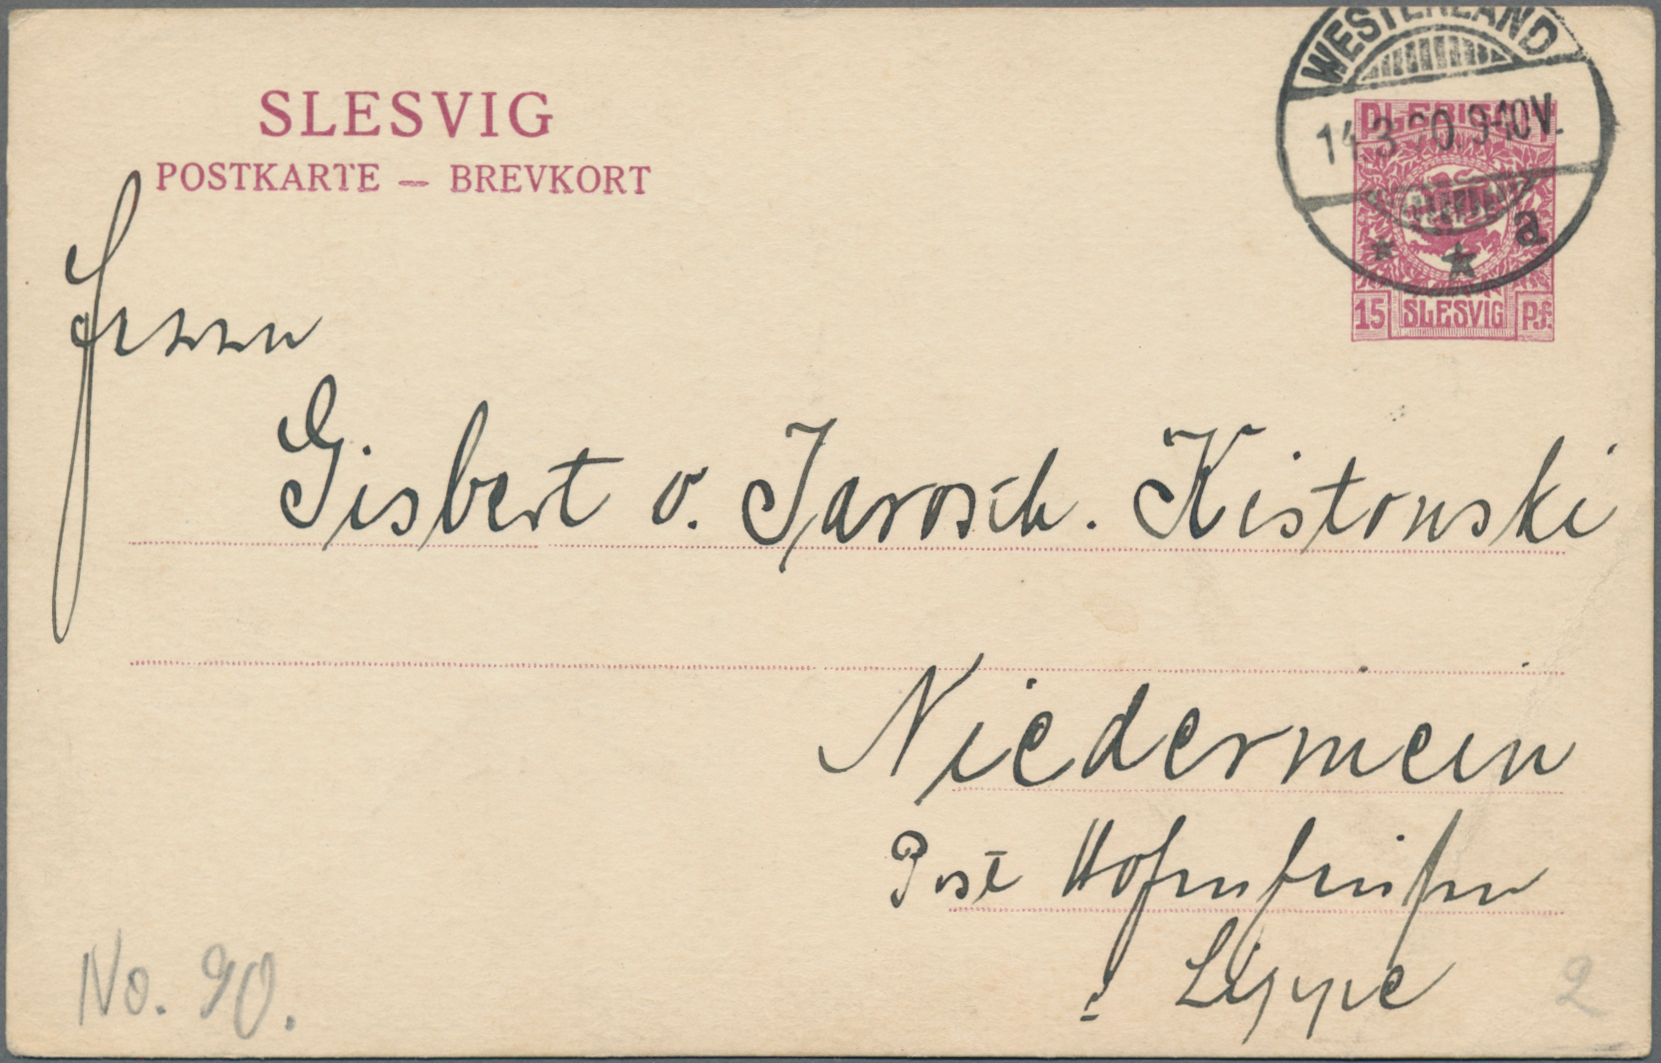 SLESVIG
POSTKARTE — BREVKORT
WESTERLAND
14.3.20.9-10V.
* * a
PLEBISCIT
15 SLESVIG Pf.
Herrn
Gisbert v. Jarosch. Kistowski
Niedermein
Post
Lippe
No. 90.
2